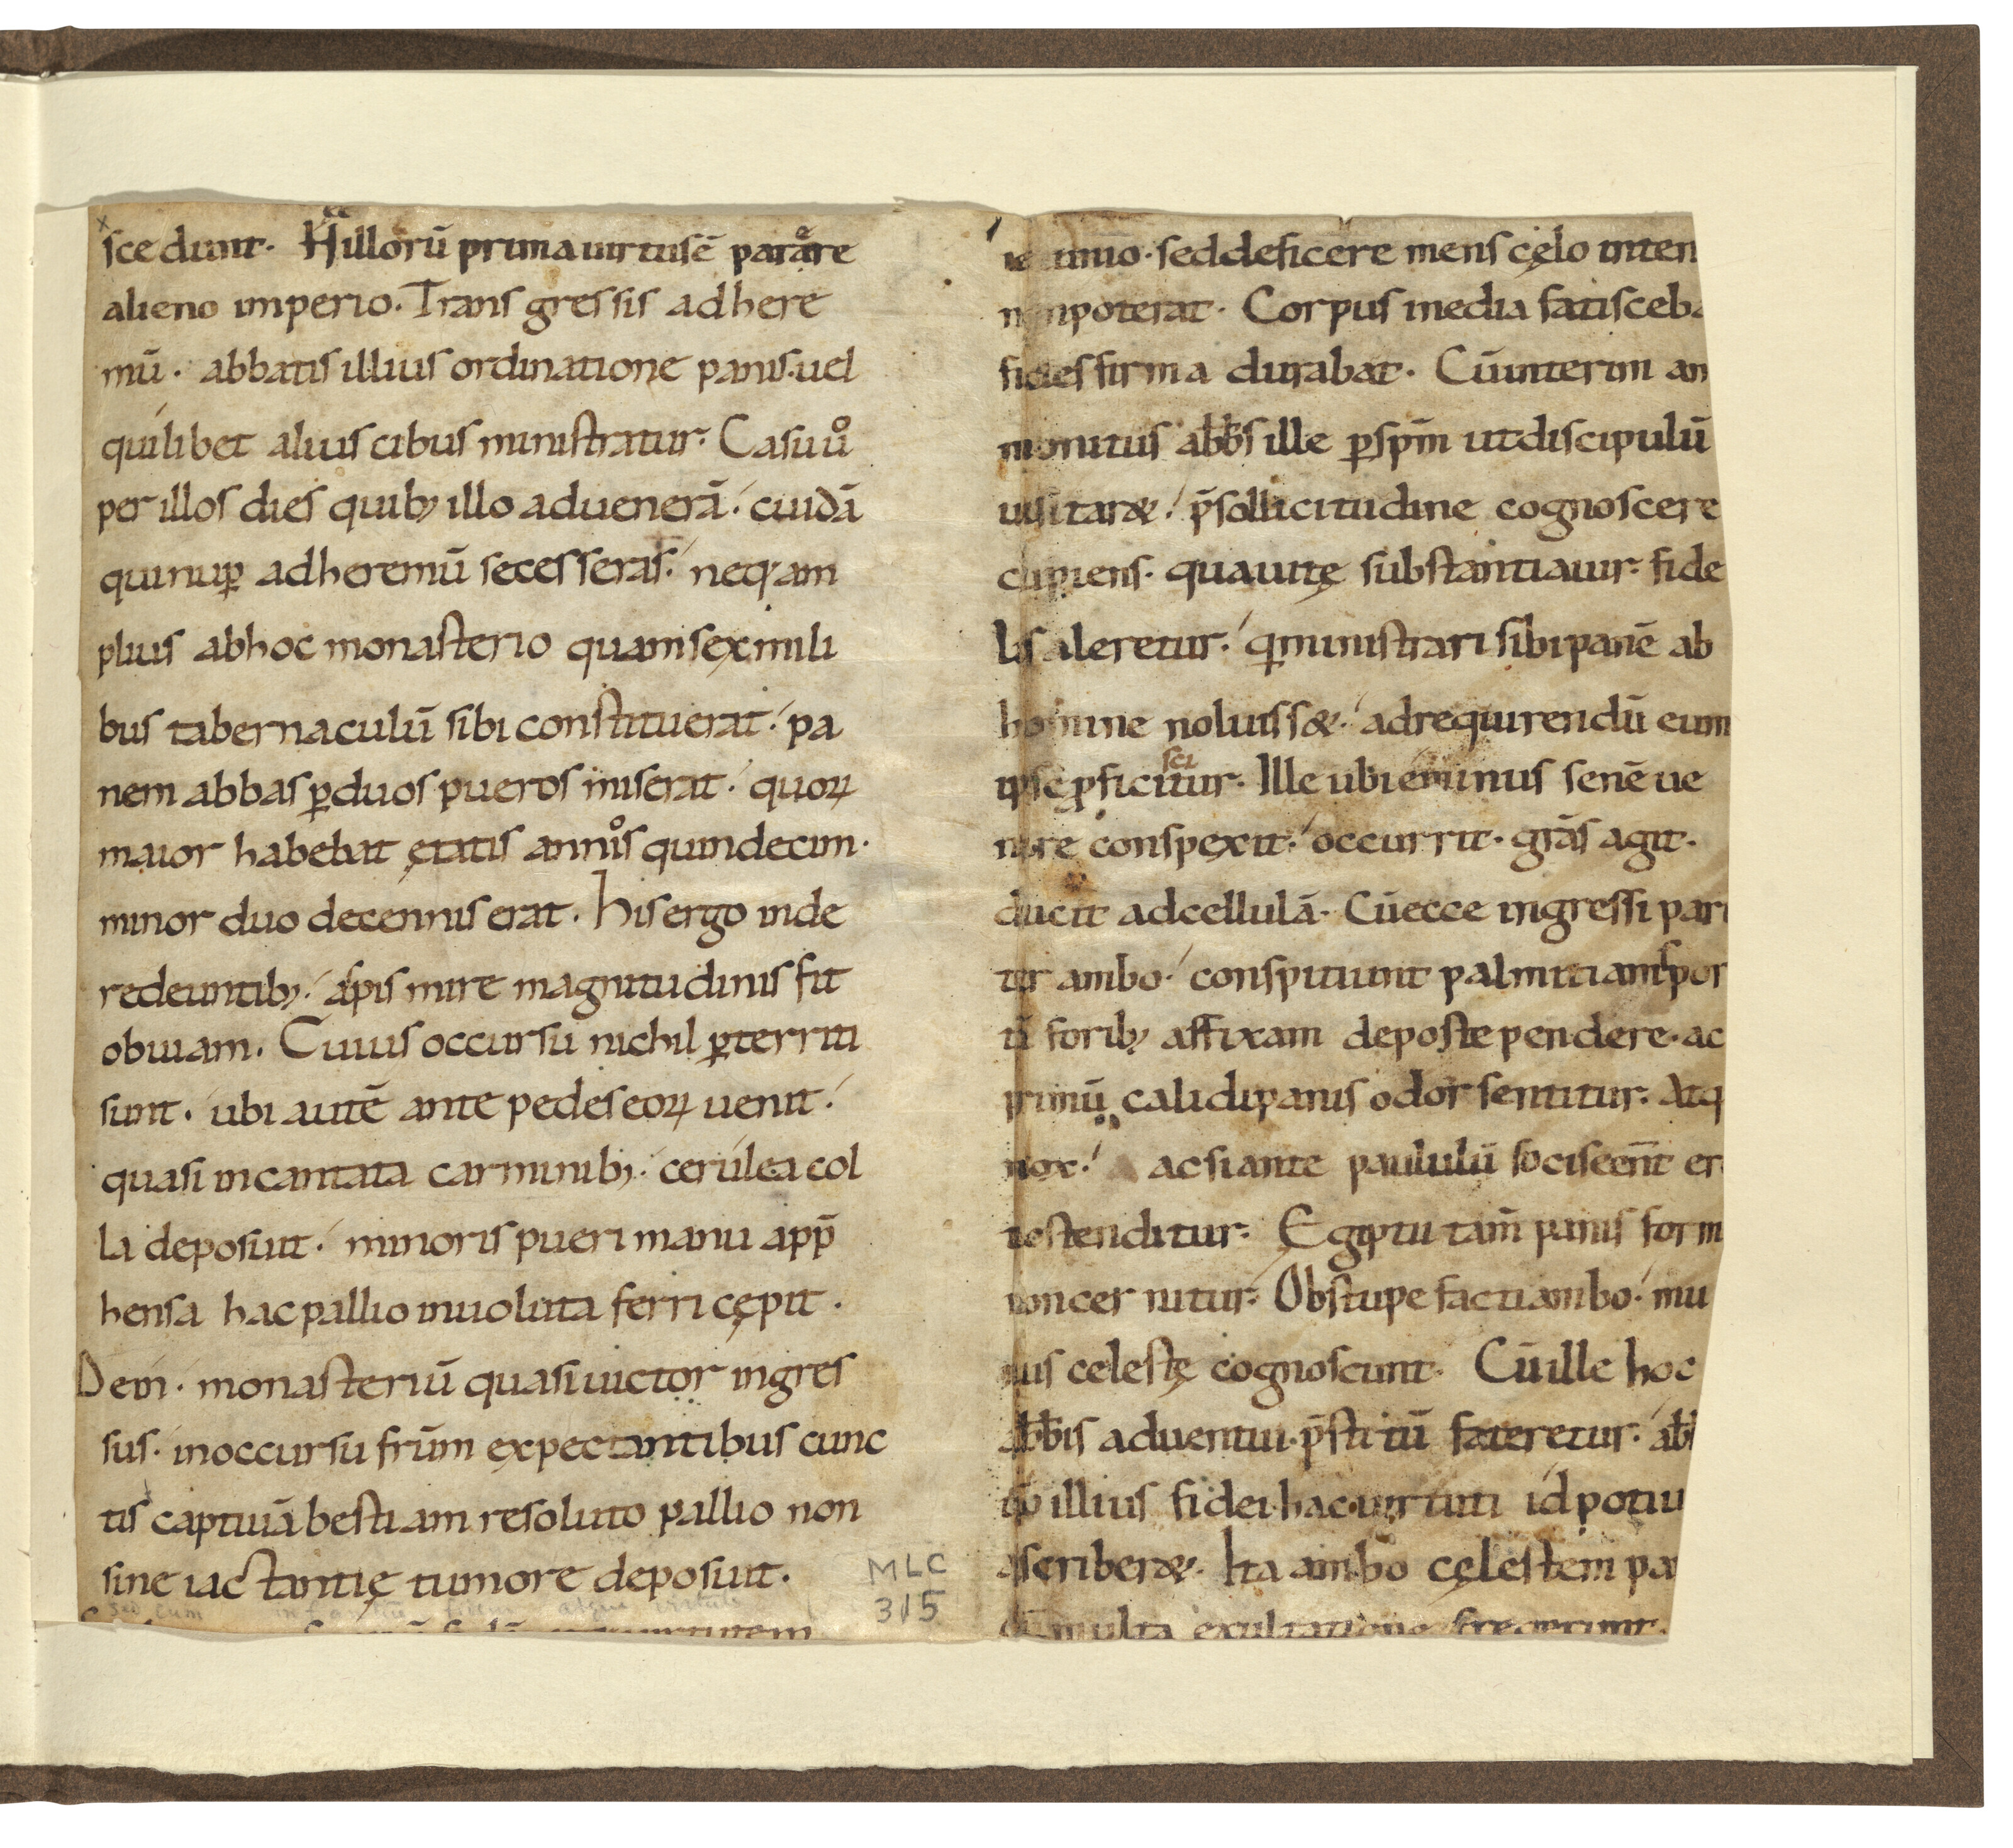 scedunt. Hillorū prima uirtus ē parare
alieno imperio. Transgressis ad here
mū. abbatis illius ordinatione panis. uel
quilibet alius cibus ministratur. Casu uº
per illos dies quibꝫ illo aduenerā. cuidā
qui nuꝑ ad heremū secesserat. neq; am
plius ab hoc monasterio quam sex mili
bus tabernaculū sibi constituerat. pa
nem abbas ꝑ duos pueros miserat. quoꝝ
maior habebat ętatis annos quindecim.
minor duodecennis erat. his ergo inde
redeuntibꝫ. aspis mire magnitudinis fit
obuiam. Cuius occursu nichil ꝑterriti
sunt. ubi autē ante pedes eoꝝ uenit.
quasi incantata carminibꝫ. cerulea col
la deposiut. minoris pueri manu app̄
hensa hac pallio inuoluta ferri cępit.
Dein. monasteriū quasi uictor ingres
sus. in occursu frūm expectantibus cunc
tis captiuā bestiam resoluto pallio non
sine iactantię tumore deposiut.
MLC
315
ieiunio. sed deficere mens cęlo inten
non poterat. Corpus media fatisceba
fides firma durabat. Cū interim am
monitus abb̄s ille ꝑ sp̄m ut discipulū
uisitar&. p̄ sollicitudine cognoscere
cupiens. qua uitę substantia uir fide
lis aleretur. q ministrari sibi panē ab
homine noluiss&. ad requirendū eum
ipse ꝓficisci tur. Ille ubi eminus senē ue
nire conspexit. occurrit. gr̄as agit.
ducit ad cellulā. Cū ecce ingressi pari
ter ambo. conspitiunt palmitiam spor
tā foribꝫ affixam de poste pendere. ac
primū calidi panis odor sentitur. Atq
nox. ac si ante paululū foci seent er
tostenditur. Egiptii tam̄ panis form
non cernitur. Obstupefacti ambo. mu
nus celestę cognoscunt. Cū ille hoc
abb̄is aduentui. p̄stitū fateretur. abb
illius fidei. hac uirtuti id potiu
ascriber&. Ita ambo cęlestem pa
multa exultatione fregerunt.